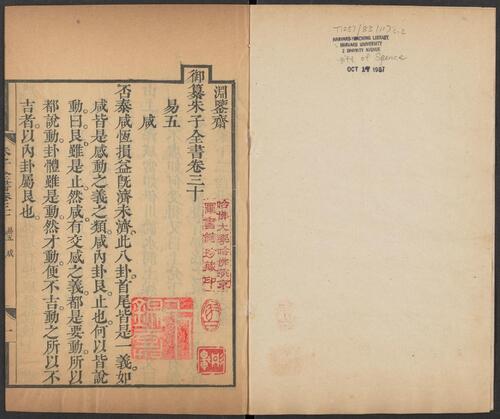 淵鑒齋
御纂朱子全書卷三十
易五
咸
否泰咸恆損益既濟未濟此八卦首尾皆是一義如
咸皆是感動之義之類咸內卦艮止也何以皆說
動曰艮雖是止然咸有交感之義都是要動所以
都說動卦體雖是動然才動便不吉動之所以不
吉者以內卦屬艮也
易五 咸
一
哈佛大學哈佛燕京
圖書館珍藏印
T1237/83/117c.2
HARVARD-YENCHING LIBRARY
HARVARD UNIVERSITY
2 DIVINITY AVENUE
gift of Spence
OCT 19 1987